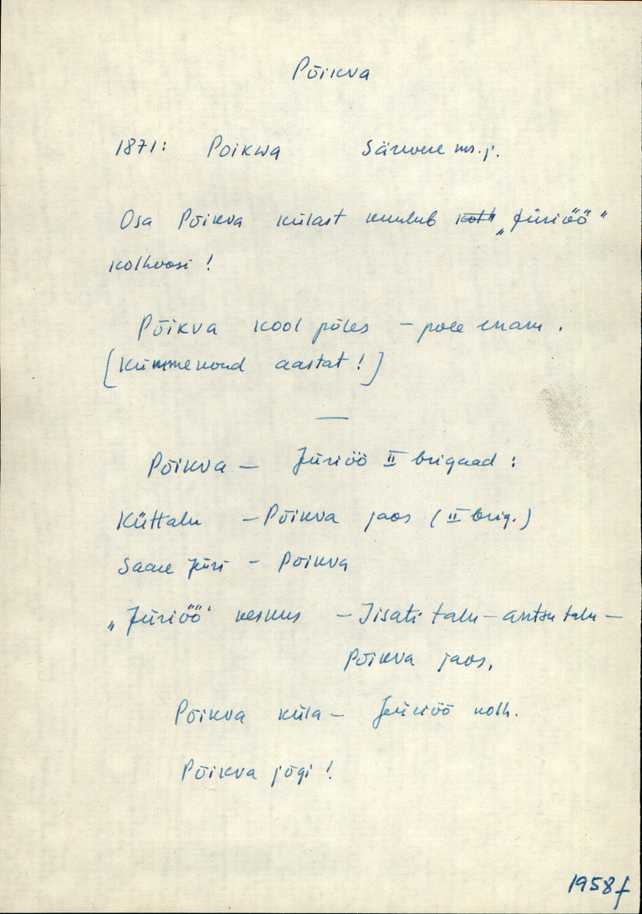 Põikva
1871: Poikwa Särevere ms. j.
Osa Põikva külast kuulub "Jüriöö"
kolhoosi!
Põikva kool põles – pole enam.
[Kümmekond aastat!]
—
Põikva – Jüriöö II brigaad:
Küttalu – Põikva jaos (II brig.)
Saare Jüri – Põikva
„Jüriöö" keskus – Iisati talu – Antsu talu –
Põikva jaos.
Põikva küla – Jüriöö kolh.
Põikva jõgi!
1958 f